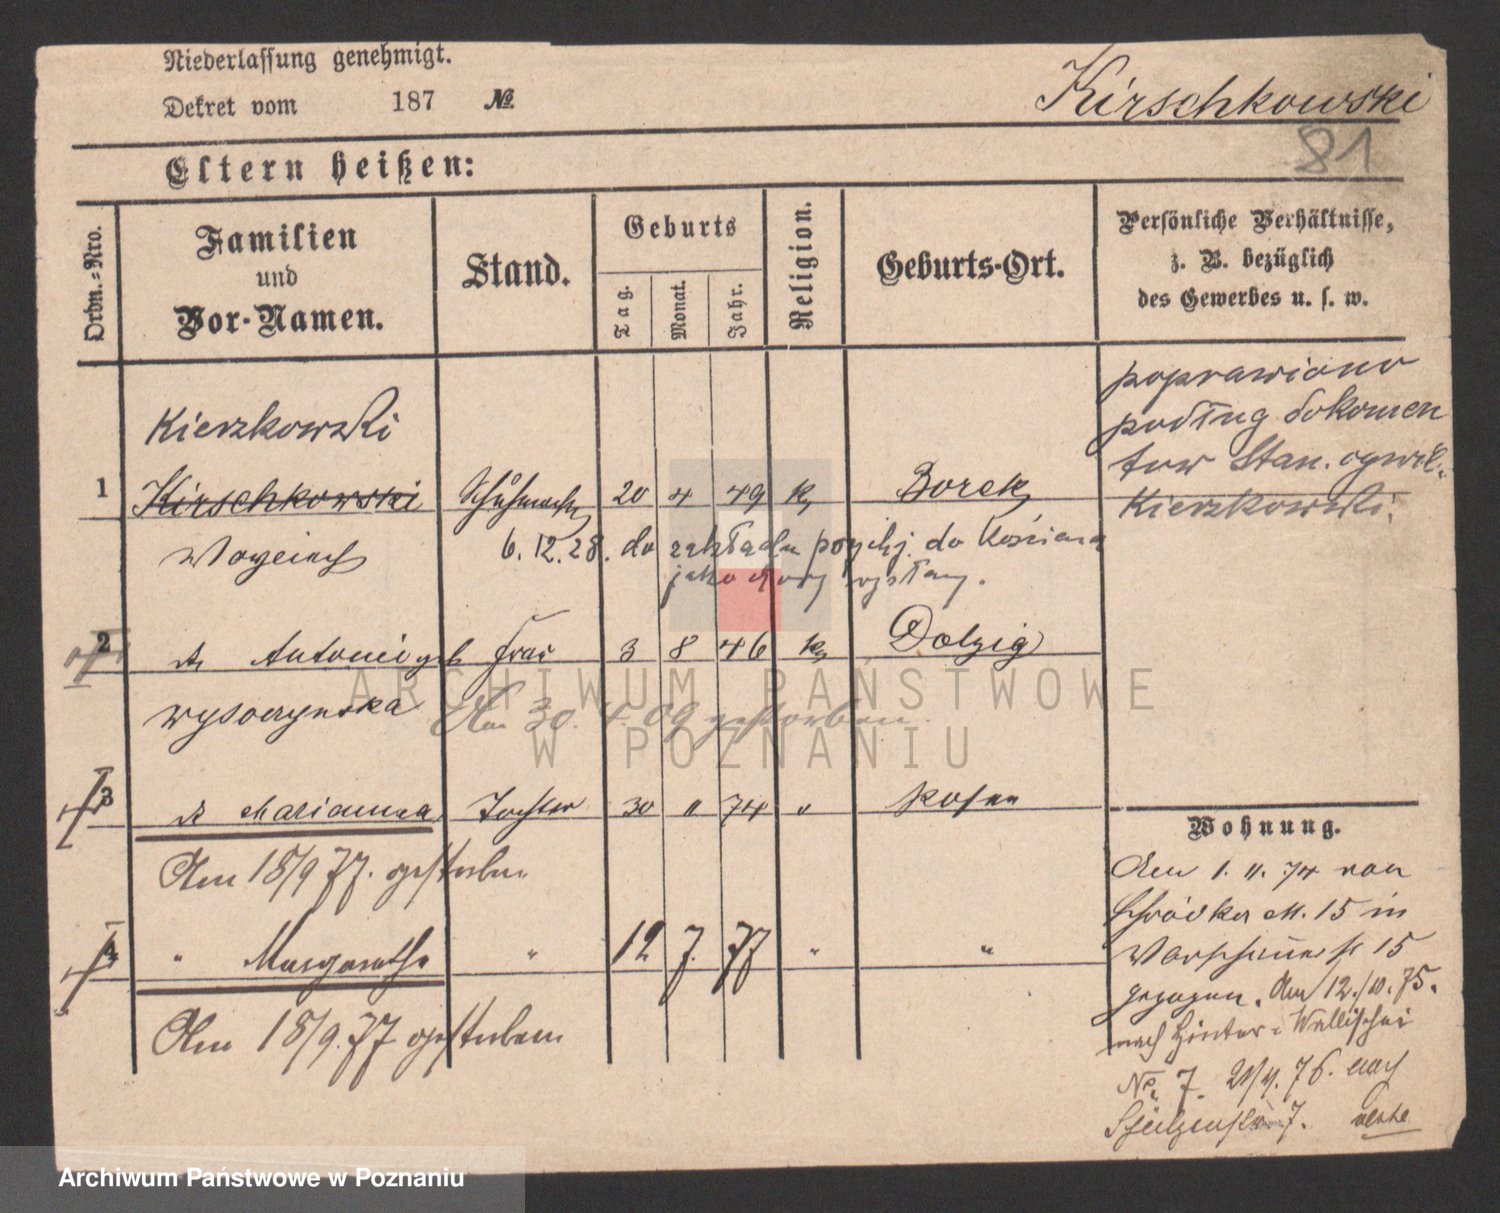 Niederlassung genehmigt.
Dekret vom 187 №
Kirschkowski
81
Eltern heißen:
Ordn.-Nro.
Familien
und
Vor-Namen.
Stand.
Geburts
Tag.
Monat.
Jahr.
Religion.
Geburts-Ort.
Persönliche Verhältnisse,
z. B. bezüglich
des Gewerbes u. s. w.
poprawiono
podług dokomen
tow Stan. cywil.
Kierzkowski.
Kierzkowski
1 Kirschkowski Schuhmacher 20 4 49 k Borek
Woyciech
6.12.28. do zakładu psychj. do Kościana
jako chory wysłany.
2 Antonie geb Frau 3 8 46 k Dolzig
Wysoczynska
Am 30. 4. 09 gestorben.
3 Marianna Tochter 30 " 74 " Posen
Am 18/9 77. gestorben
4 " Margarethe " 12 7. 77 " "
Am 18/9.77 gestorben
Wohnung.
Am 1. 11. 74 von
Schrodka M. 15 in
Warschauerstr 15
gezogen. Am 12./10. 75.
nach Hinter-Wallischei
No. 7. 21/4. 76. nach
7.
ARCHIWUM PAŃSTWOWE
W POZNANIU
Archiwum Państwowe w Poznaniu